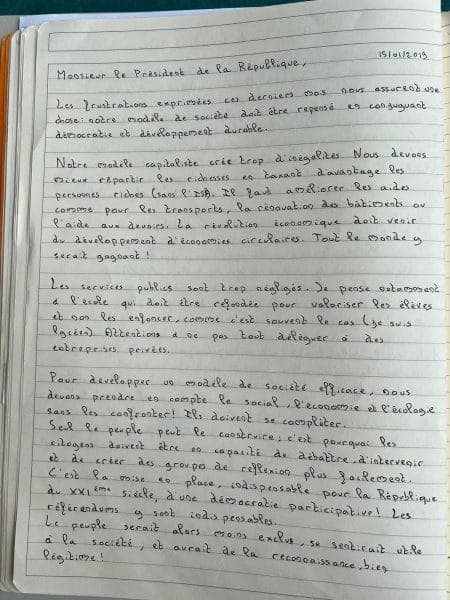 15/01/2019
Monsieur le Président de la République,
Les frustrations exprimées ces derniers mois nous assurent une
chose: notre modèle de société doit être repensé en conjuguant
démocratie et développement durable.
Notre modèle capitaliste crée trop d'inégalités. Nous devons
mieux répartir les richesses en taxant d'avantage les
personnes riches (sans l'ISF). Il faut améliorer les aides
comme pour les transports, la rénovation des bâtiments ou
l'aide aux devoirs. La révolution économique doit venir
du développement d'économies circulaires. Tout le monde y
serait gagnant!
Les services publics sont trop négligés. Je pense notamment
à l'école qui doit être refondée pour valoriser les élèves
et non les enfoncer, comme c'est souvent le cas (je suis
lycéen). Attentions à ne pas tout déléguer à des
entreprises privées.
Pour développer un modèle de société efficace, nous
devons prendre en compte le social, l'économie et l'écologie
sans les confronter! Ils doivent se compléter.
Seul le peuple peut le construire; c'est pourquoi les
citoyens doivent être en capacité de débattre, d'intervenir
et de créer des groupes de réflexion plus facilement.
C'est la mise en place, indispensable pour la République
du XXIème siècle, d'une démocratie participative! Les
référendums y sont indispensables.
Le peuple serait alors moins exclus, se sentirait utile
à la société, et aurait de la reconnaissance, bien
légitime!